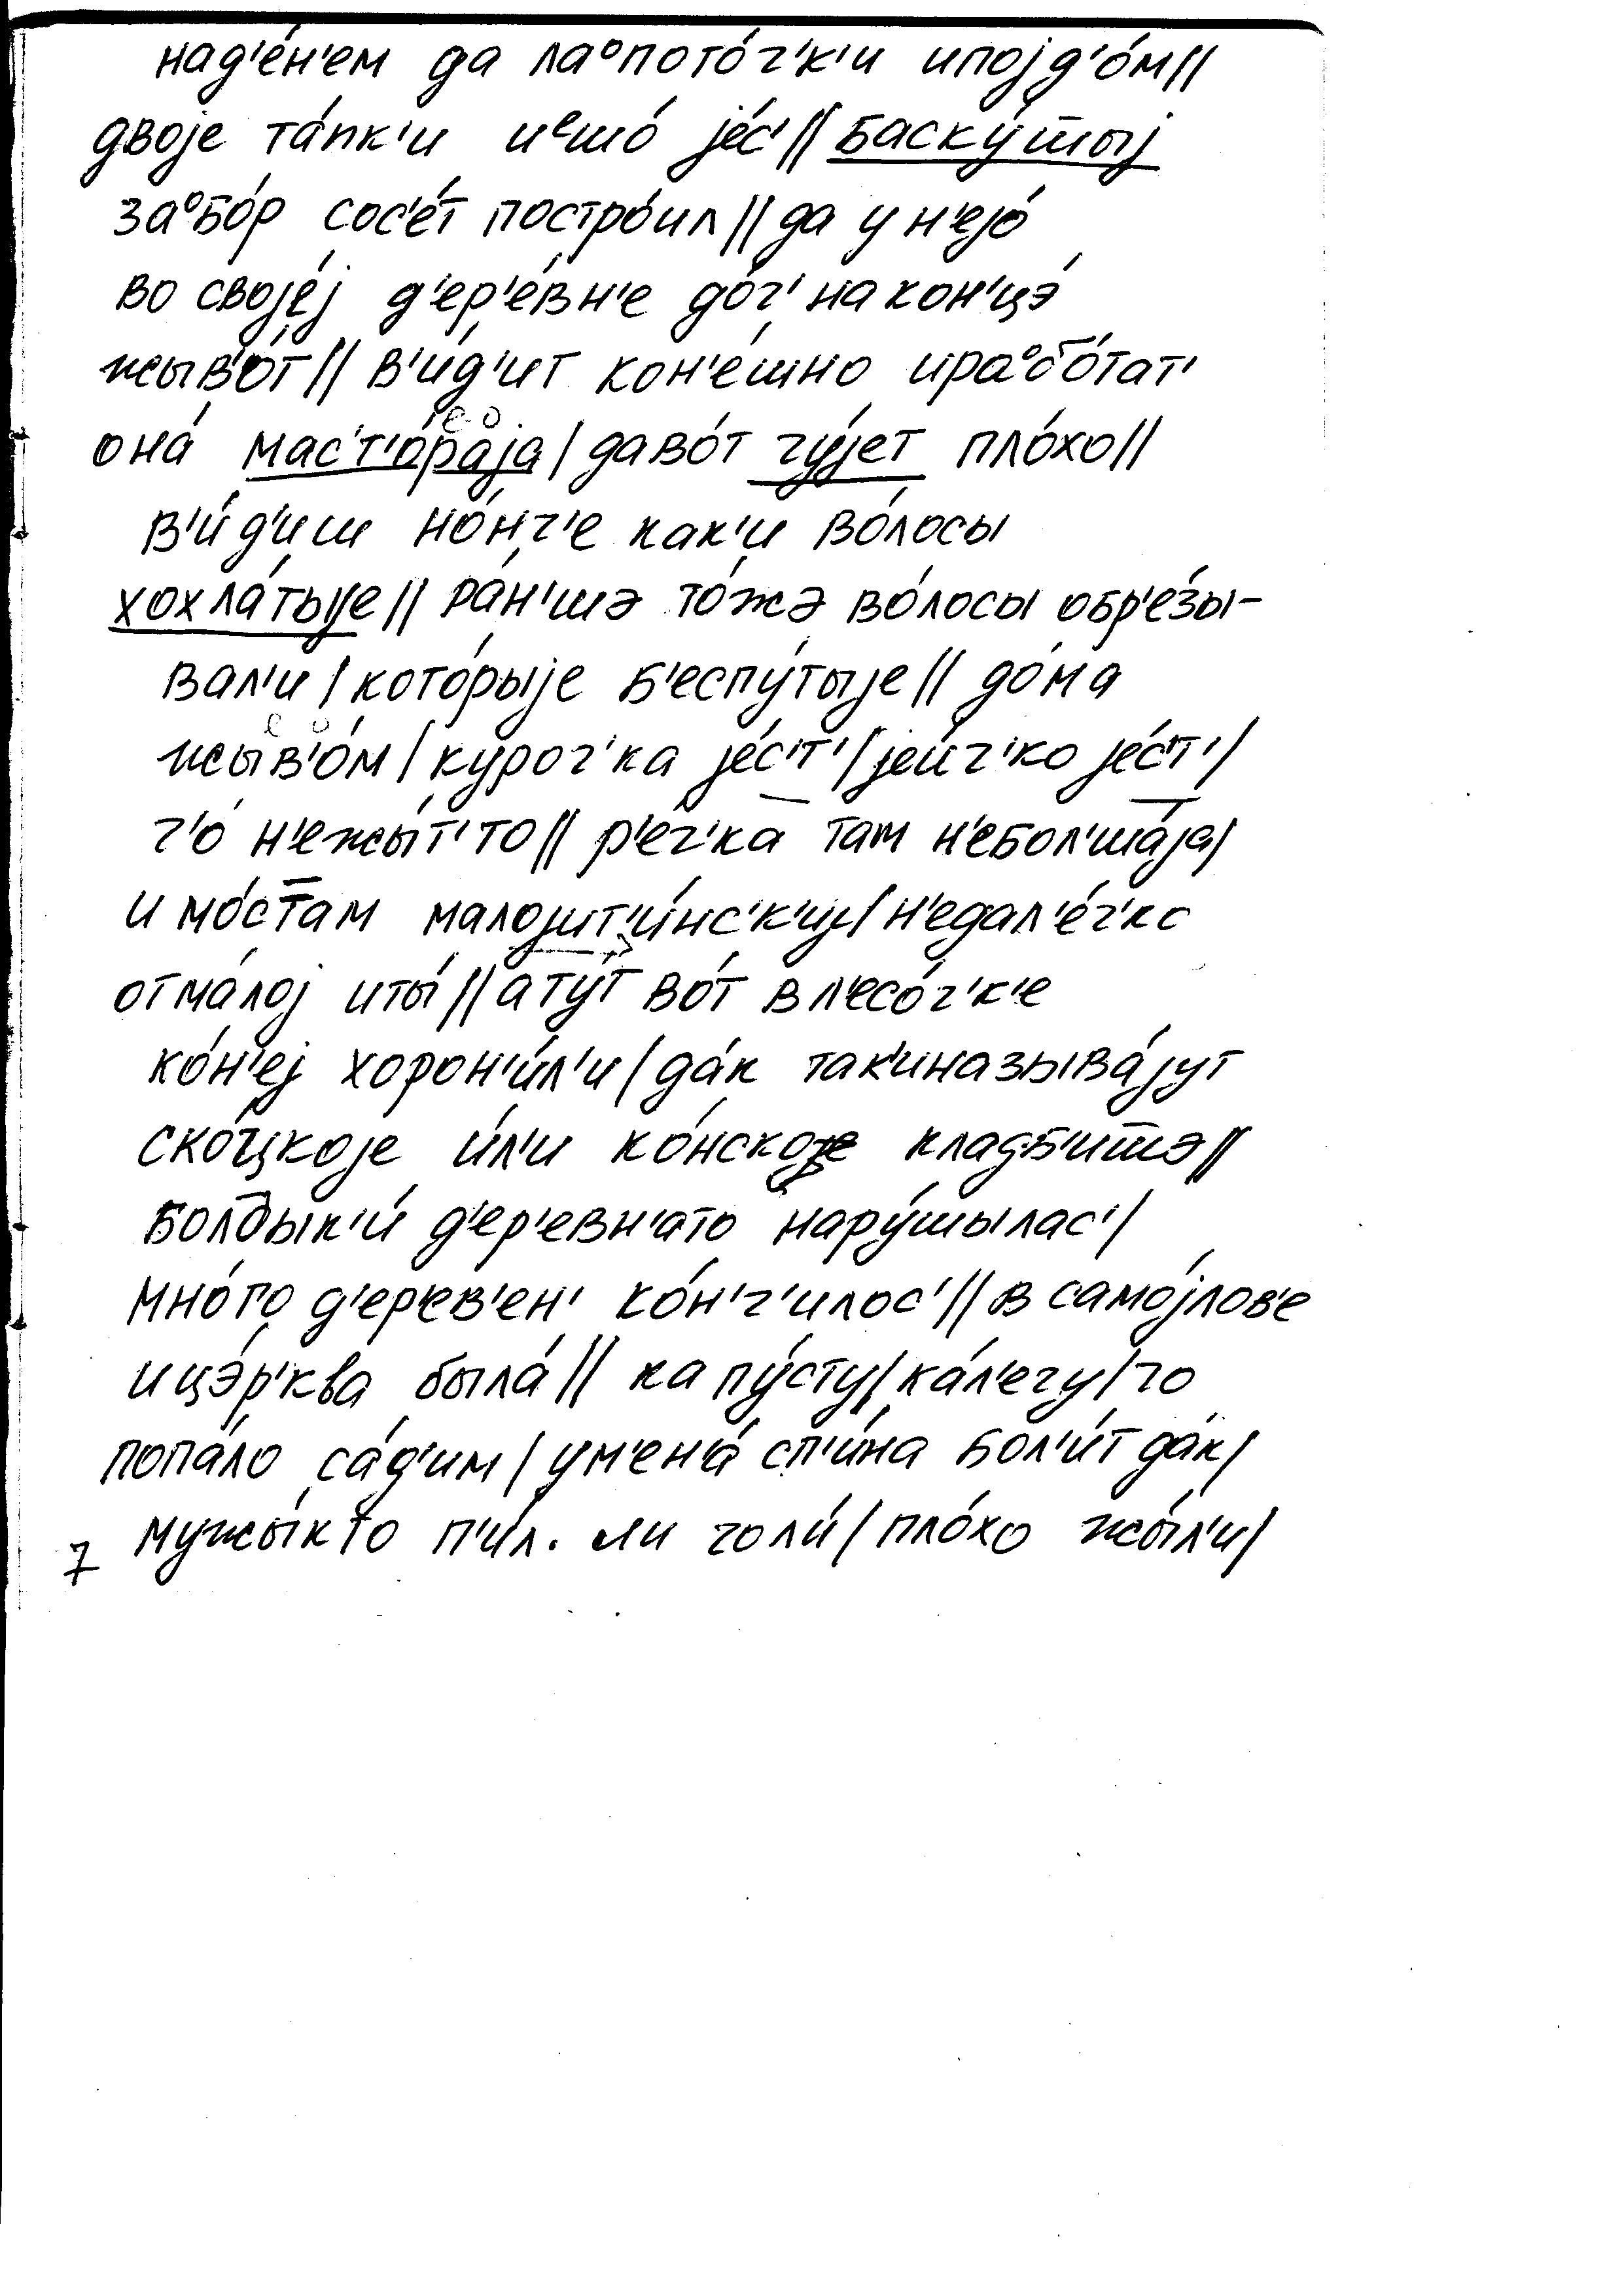 над'е́н'ем да лаᵒпото́ч'к'и ипоjд'о́м//
двоjе та́пк'и иᵉшо́ jе́с'// баску́шыj
заᵒбо́р сос'е́т постро́ил// да у н'еjо́
во своjе́j д'ер'е́вн'е до́ч' на кон'цэ́
жыв'о́т// в'и́д'ит кон'е́шно ираᵒбо́тат'
она́ мас'т'о́раjа/ даво́т чу́jет пло́хо//
в'и́д'иш но́нч'е как'и во́лосы
хохла́тыjе// ра́н'шэ то́жэ во́лосы обр'е́зы-
вал'и/ кото́рыjе б'еспу́тыjе// до́ма
жыв'о́м/ ку́роч'ка jе́с'т'/ jеи́ч'ко jе́с'т'/
ч'о́ н'ежы́т'то// р'е́ч'ка там н'ебол'ша́jа/
и мо́стам малоjит'и́нс'к'иj/ н'едал'е́ч'ко
отма́лоj иты́// а ту́т во́т в л'есо́ч'к'е
ко́н'еj хорон'и́л'и/ да́к так'иназыва́jут
ско́цкоjе и́л'и ко́нскоjе кладб'ишэ//
болдык'и́ д'ер'евн'ато нару́шылас'/
мно́го д'ер'ев'ен' ко́н'ч'илос'// в само́jлов'е
ицэ́р'ква была́// капу́сту/ ка́л'егу/ чо
попа́ло са́д'им/ ум'ен'а́ сп'и́на бол'и́т да́к/
мужы́кто п'и́л. ли чоли́/ пло́хо жы́л'и/
7